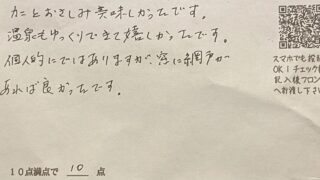 カニとおさしみ美味しかったです。
温泉もゆっくりできて嬉しかったです。
個人的にではありますが、窓に網戸が
あれば良かったです。
スマホでも
OK!チェック
記入後フロン
へお渡し下さい
10点満点で 10 点